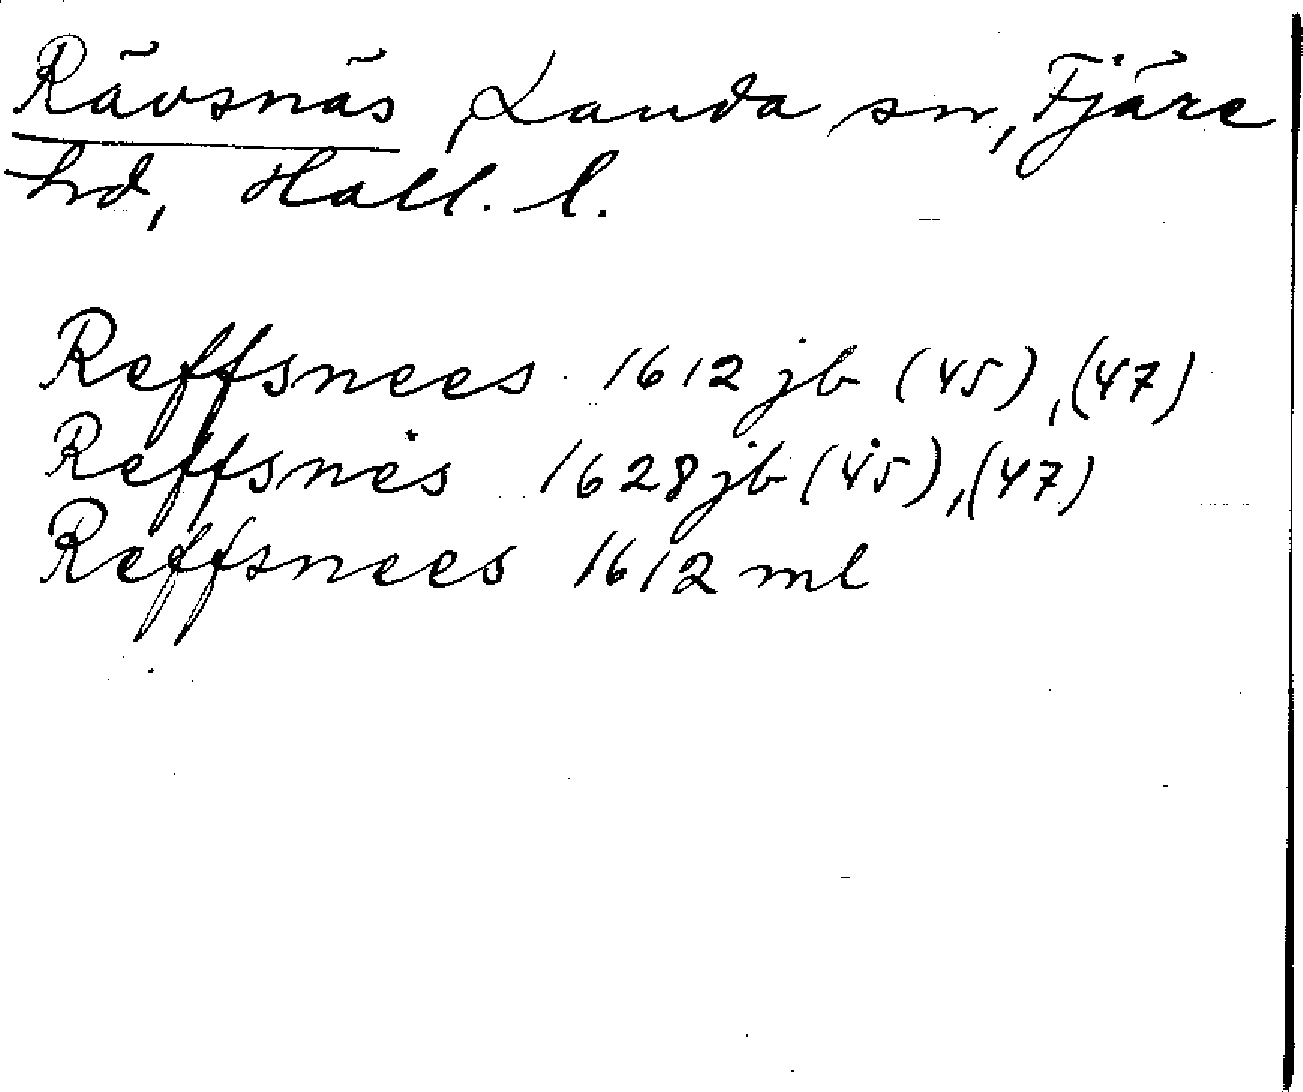 Rävsnäs, Landa sn, Fjäre
hd, Hall. l.
Reffsnees 1612 jb (45), (47)
Reffsnes 1628 jb (45), (47)
Reffsnees 1612 ml